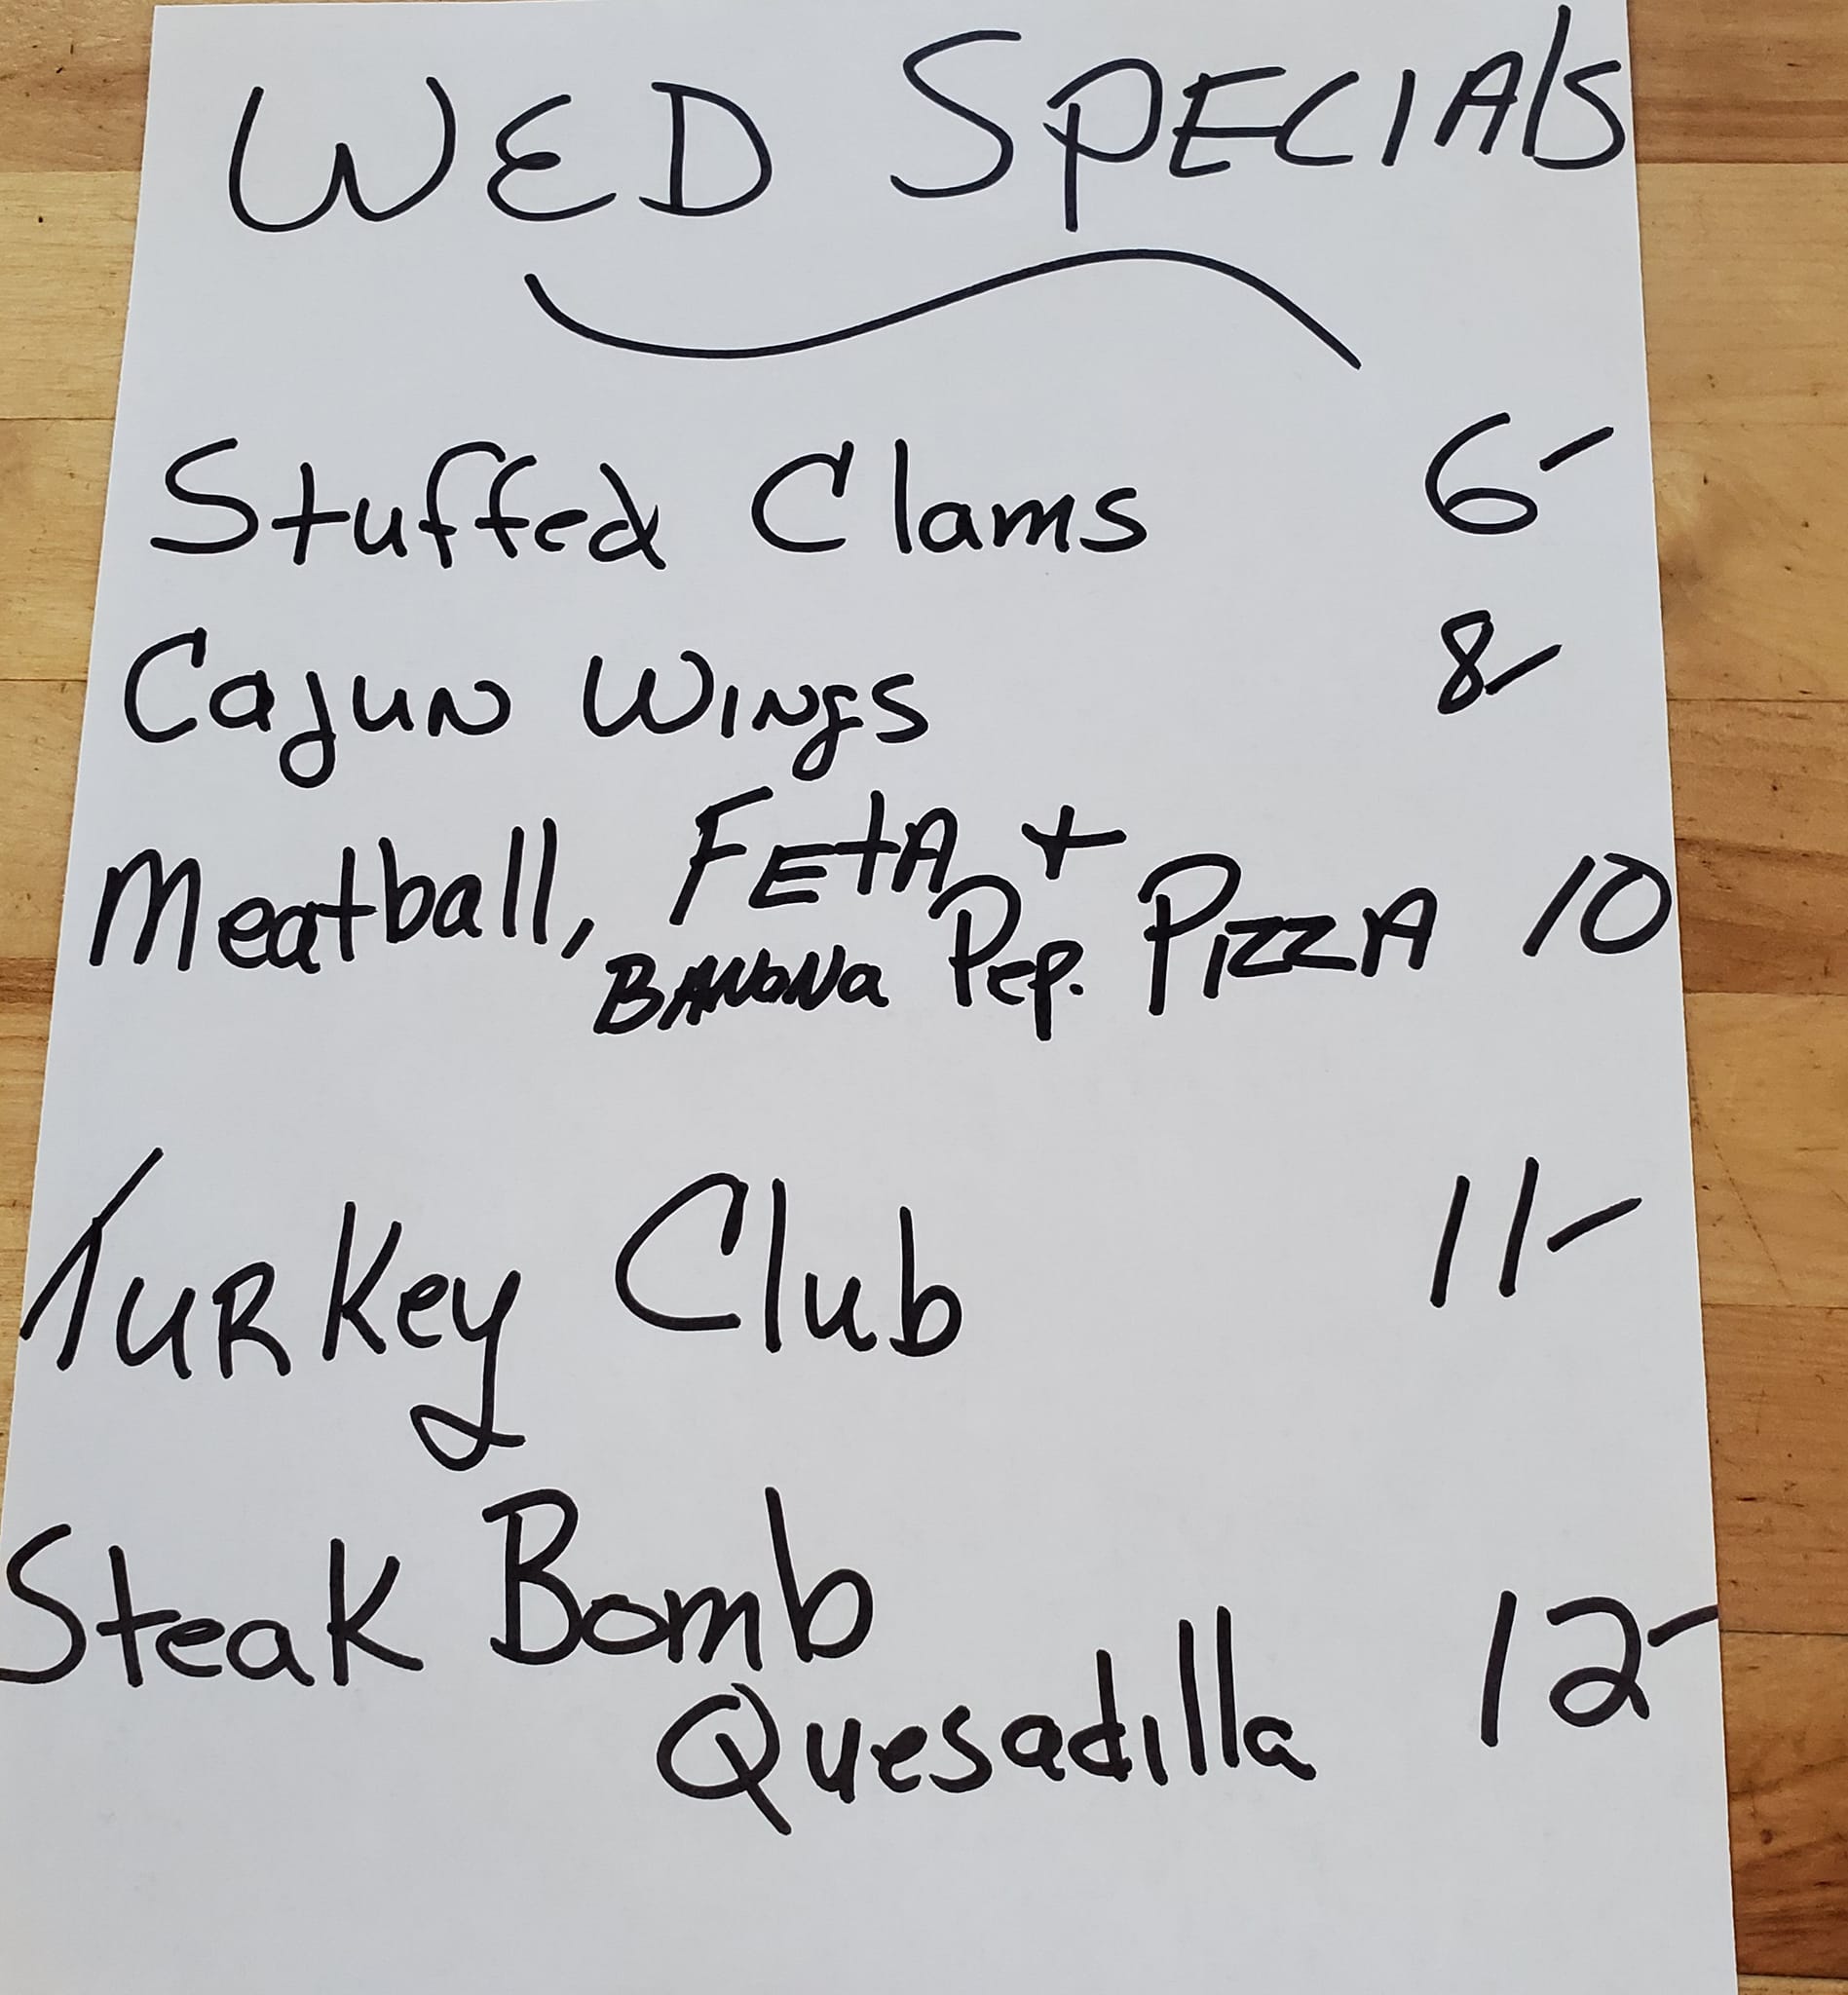 WED SPECIAlS
Stuffed Clams 6-
Cajun Wings 8-
Meatball, FEtA + BANaNa Pep. PIZZA 10
TURKey Club 11-
Steak Bomb
Quesadilla 12-